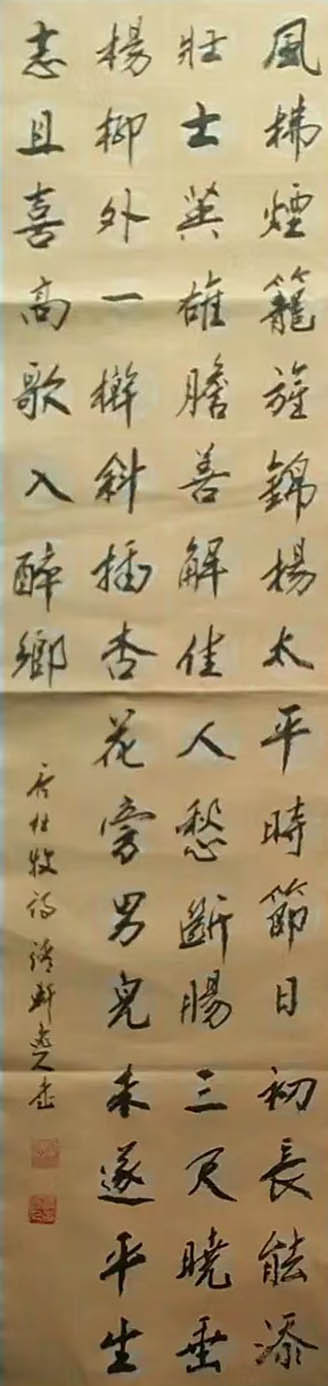 風拂煙籠旌錦楊太平時節日初長能添
壯士英雄膽善解佳人愁斷腸三尺曉垂
楊柳外一斜插杏花旁男兒未遂平生
志且喜高歌入醉鄉
唐杜牧詩 軒人書